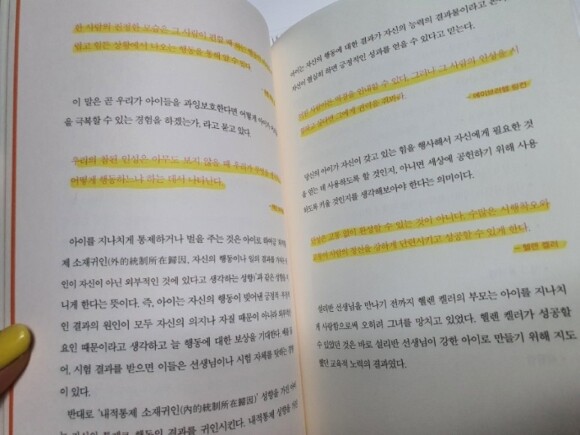 한 사람의 진정한 모습은 그 사람이 편할 때 하는 행동이
힘들고 힘든 상황에서 나오는 행동을 통해 알 수 있다
이 말은 곧 우리가 아이들을 과잉보호한다면 어떻게 아이가
을 극복할 수 있는 경험을 하겠는가, 라고 묻고 있다.
우리의 참된 인성은 아무도 보지 않을 때 우리가
어떻게 행동하느냐 하는 데서 나타난다.
아이를 지나치게 통제하거나 벌을 주는 것은 아이로 하여금
제 소재귀인(外的統制所在歸因, 자신의 행동이나 일의 결과가
인이 자신이 아닌 외부적인 것에 있다고 생각하는 성향)'과 같은
니게 한다는 뜻이다. 즉, 아이는 자신의 행동이 빚어낸 긍정적
인 결과의 원인이 모두 자신의 의지나 자질 때문이 아니라
요인 때문이라고 생각하고 늘 행동에 대한 보상을 기대한다.
어, 시험 결과를 받으면 이들은 선생님이나 시험 자체를 탓하는
이 있다.
반대로 '내적통제 소재귀인(內的統制所在歸因)' 성향을 가진
행동의 결과를 귀인시킨다. 내적통제 성향을
아이는 자신의 행동에 대한 결과가 자신의 능력의 결과물이라고
자신이 열심히 하면 긍정적인 성과를 얻을 수 있다고 믿는다.
수 있다. 그러나 그 사람의 인성을
싶다면 그에게 권력을 줘봐라.
- 에이브러햄 링컨
당신의 아이가 자신이 갖고 있는 힘을 행사해서 자신에게 필요한 것
을 얻는 데 사용하도록 할 것인지, 아니면 세상에 공헌하기 위해 사용
하도록 키울 것인지를 생각해보아야 한다는 의미이다.
인성은 고통 없이 완성될 수 있는 것이 아니다. 수많은 시행착오와
사람의 정신을 강하게 단련시키고 성공할 수 있게 한다.
- 헬렌 켈러
설리반 선생님을 만나기 전까지 헬렌 켈러의 부모는 아이를 지나치
게 사랑함으로써 오히려 그녀를 망치고 있었다. 헬렌 켈러가 성공할
수 있었던 것은 바로 설리반 선생님이 강한 아이로 만들기 위해 지도
했던 교육적 노력의 결과였다.